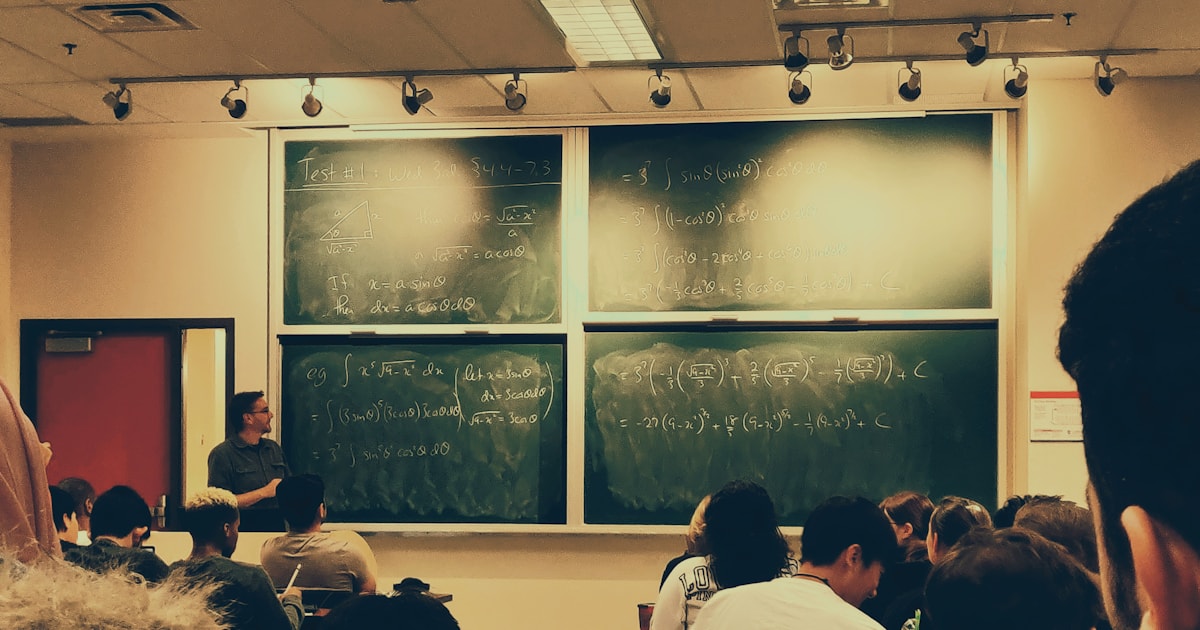 Test #1: Wed 3rd §4.4-7.3
a
x
θ
√a²-x²
then cosθ = √a²-x² / a
∴ √a²-x² = a cosθ
If x = a sinθ
then dx = a cosθ dθ
eg ∫ x⁵ √9-x² dx (let x = 3sinθ
dx = 3cosθ dθ
√9-x² = 3cosθ)
= ∫ (3sinθ)⁵ (3cosθ) 3cosθ dθ
= 3⁷ ∫ sin⁵θ cos²θ dθ
= 3⁷ ∫ sinθ (sin²θ)² cos²θ dθ
= 3⁷ ∫ (1-cos²θ)² cos²θ sinθ dθ
= 3⁷ ∫ (cos²θ - 2cos⁴θ + cos⁶θ) sinθ dθ
= 3⁷ (-⅓ cos³θ + ⅖ cos⁵θ - ⅐ cos⁷θ) + C
= 3⁷ (-⅓ (√9-x² / 3)³ + ⅖ (√9-x² / 3)⁵ - ⅐ (√9-x² / 3)⁷) + C
= -27 (9-x²)^3/2 + 18/5 (9-x²)^5/2 - 1/7 (9-x²)^7/2 + C